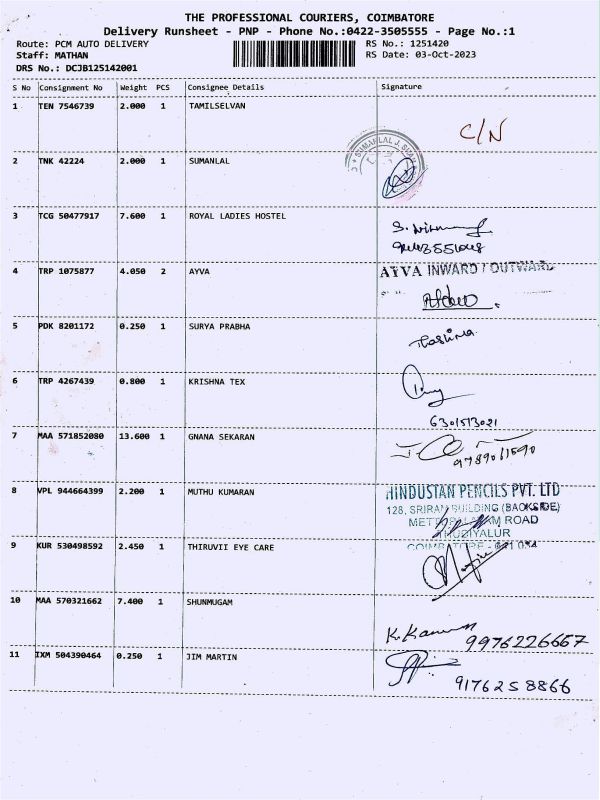 THE PROFESSIONAL COURIERS, COIMBATORE
Delivery Runsheet - PNP - Phone No.:0422-3505555 - Page No.:1
Route: PCM AUTO DELIVERY RS No.: 1251420
Staff: MATHAN RS Date: 03-Oct-2023
DRS No.: DCJB125142001
S No Consignment No Weight PCS Consignee Details Signature
1 TEN 7546739 2.000 1 TAMILSELVAN C/N
2 TNK 42224 2.000 1 SUMANLAL
SUMANLAL J.
3 TCG 50477917 7.600 1 ROYAL LADIES HOSTEL
4 TRP 1075877 4.050 2 AYVA AYVA INWARD / OUTWARD
5 PDK 8201172 0.250 1 SURYA PRABHA
6 TRP 4267439 0.800 1 KRISHNA TEX
6301513021
7 MAA 571852080 13.600 1 GNANA SEKARAN
9789061590
8 VPL 944664399 2.200 1 MUTHU KUMARAN HINDUSTAN PENCILS PVT. LTD
128, SRIRAM BUILDING (BACKSIDE)
ROAD
THUDIYALUR
9 KUR 530498592 2.450 1 THIRUVII EYE CARE COIMBATORE - 641 034
10 MAA 570321662 7.400 1 SHUNMUGAM
9976226667
11 IXM 504390464 0.250 1 JIM MARTIN
9176258866